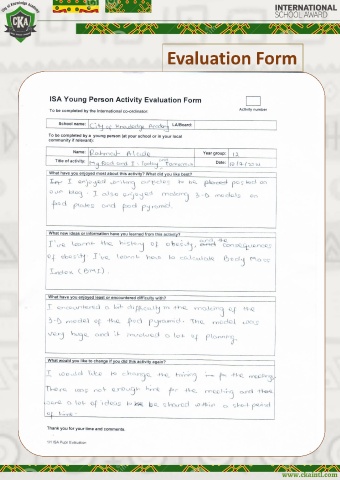 City of Knowledge Academy
CKA
INTERNATIONAL
SCHOOL AWARD
Evaluation Form
ISA Young Person Activity Evaluation Form
To be completed by the international co-ordinator:
Activity number
School name: City of Knowledge Academy LA/Board:
To be completed by a young person (at your school or in your local
community if relevant):
Name: Rahmat Alade Year group: 12
Title of activity: My Body and I - Today and Tomorrow Date:
What have you enjoyed most about this activity? What did you like best?
I enjoyed writing articles to be posted on
our blog. I also enjoyed making 3-D models on
food plates and food pyramid.
What new ideas or information have you learned from this activity?
I've learnt the history of obesity, and the consequences
of obesity. I've learnt how to calculate Body Mass
Index (BMI).
What have you enjoyed least or encountered difficulty with?
I encountered a bit difficulty in the making of the
3-D model of the food pyramid. The model was
very huge and it involved a lot of planning.
What would you like to change if you did this activity again?
I would like to change the timing for the meeting.
There was not enough time for the meeting and there
were a lot of ideas to be shared within a short period
of time.
Thank you for your time and comments.
ISA Pupil Evaluation
www.ckaintl.com